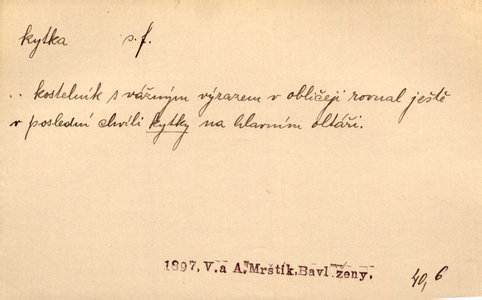 kytka s. f.
.. kostelník s vážným výrazem v obličeji rovnal ještě
v poslední chvíli kytky na hlavním oltáři.
1897, V. a A. Mrštík, Bavl. ženy.
40, 6